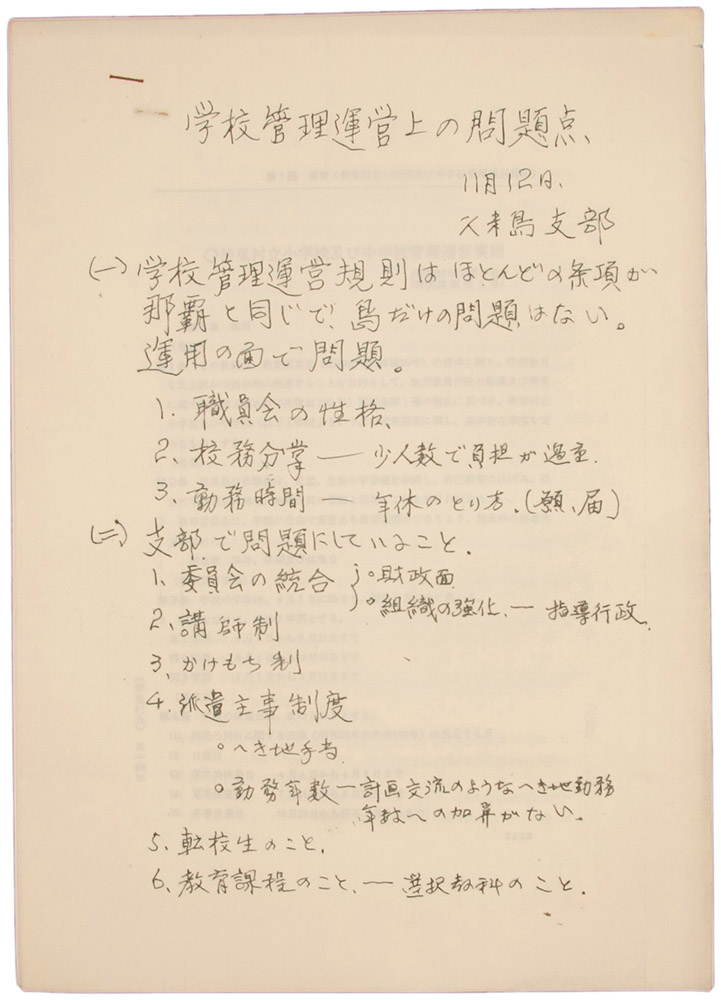 学校管理運営上の問題点、
11月12日.
久米島支部
(一) 学校管理運営規則はほとんどの条項が
那覇と同じで、島だけの問題はない。
運用の面で問題。
1. 職員会の性格、
2、校務分掌 ― 少人数で負担が過重.
3、勤務時間 ― 年休のとり方.(願、届)
(二) 支部で問題にしていること.
1、委員会の統合 } ○財政面
○組織の強化、― 指導行政、
2、講師制
3、かけもち制
4. 派遣主事制度
○へき地手当
○勤務年数―計画交流のようなへき地勤務
年数への加算がない。
5. 転校生のこと.
6、教育課程のこと、― 選択教科のこと.